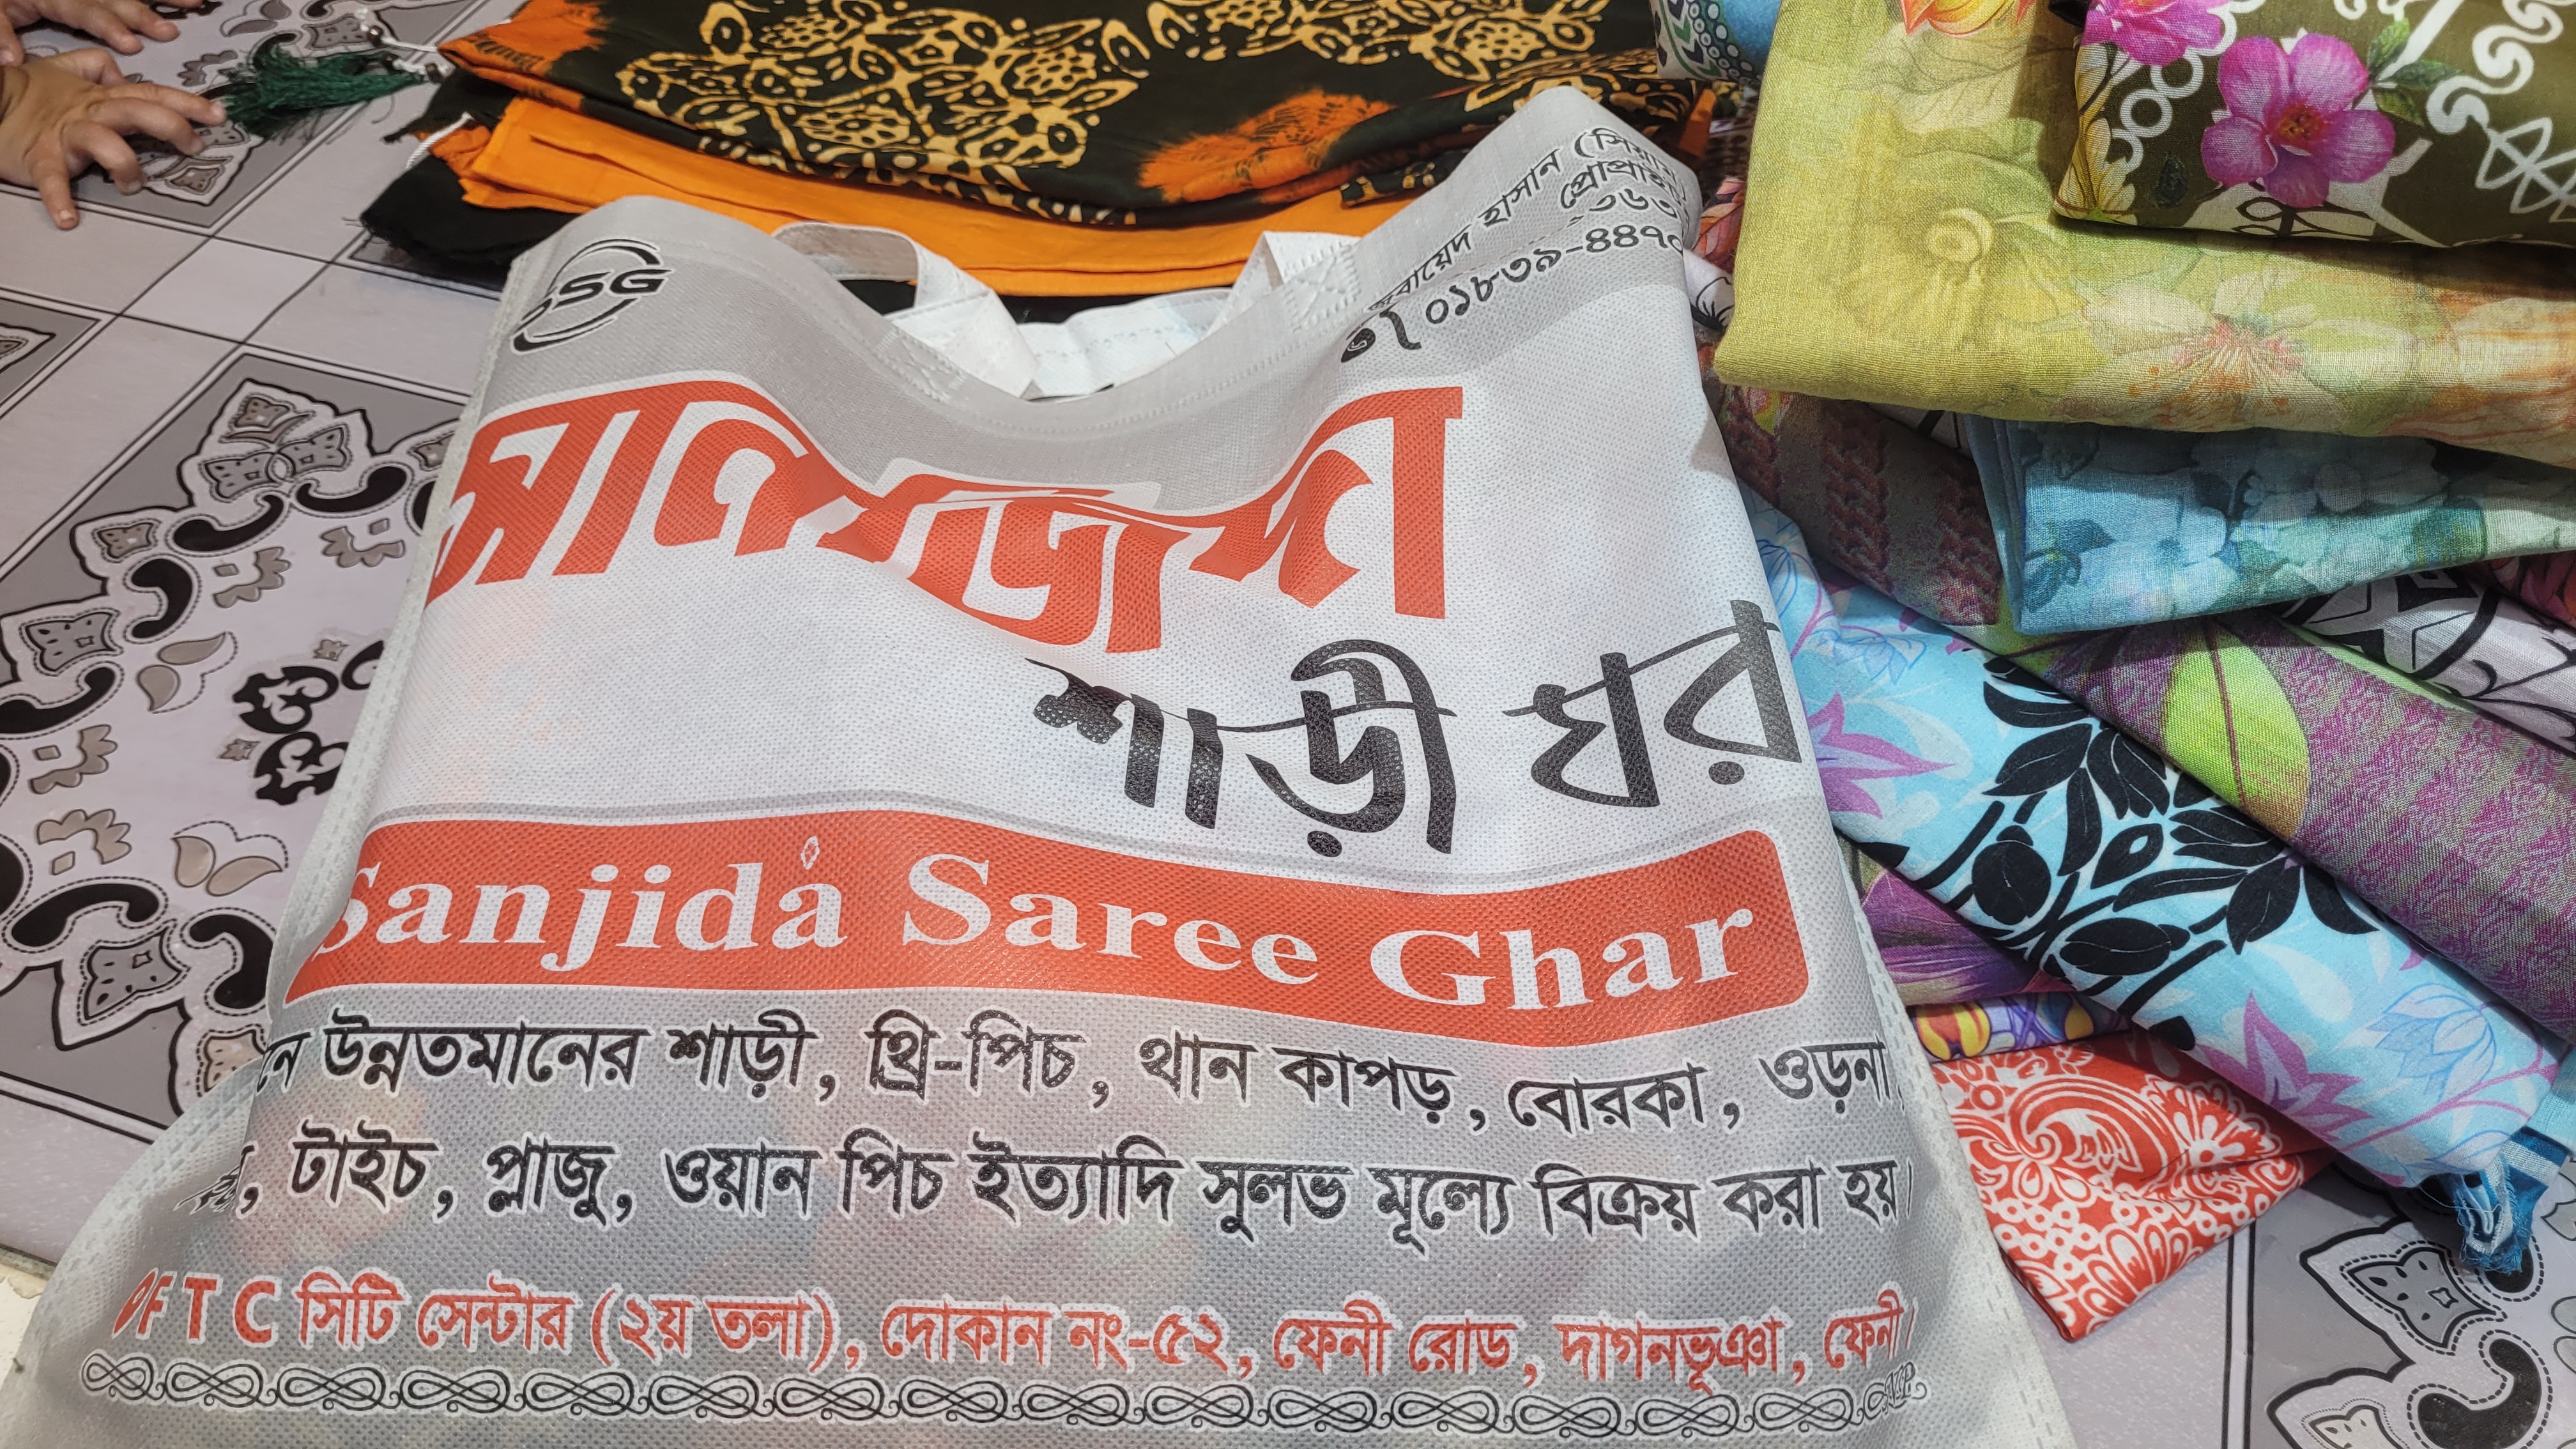 SSG
জুবায়েদ হাসান
০১৮৩৯-৪৪৭
সানজিদা
শাড়ী ঘর
Sanjida Saree Ghar
উন্নতমানের শাড়ী, থ্রি-পিচ, থান কাপড়, বোরকা, ওড়না,
টাইচ, প্লাজু, ওয়ান পিচ ইত্যাদি সুলভ মূল্যে বিক্রয় করা হয়।
F T C সিটি সেন্টার (২য় তলা), দোকান নং-৫২, ফেনী রোড, দাগনভূঞা, ফেনী।